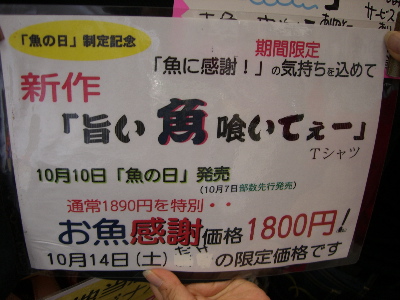 「魚の日」制定記念
期間限定
「魚に感謝！」の気持ちを込めて
新作
「旨い魚喰いてぇー」
Tシャツ
10月10日「魚の日」発売
(10月7日部数先行発売)
通常1890円を特別・・
お魚感謝価格1800円！
10月14日（土）の限定価格です
サービス